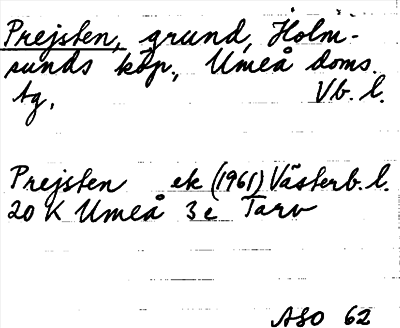 Prejsten, grund, Holm-
sunds köp., Umeå doms.
tg, Vb. l.
Prejsten ek (1961) Västerb. l.
20 K Umeå 3 c Tarv
ASO 62